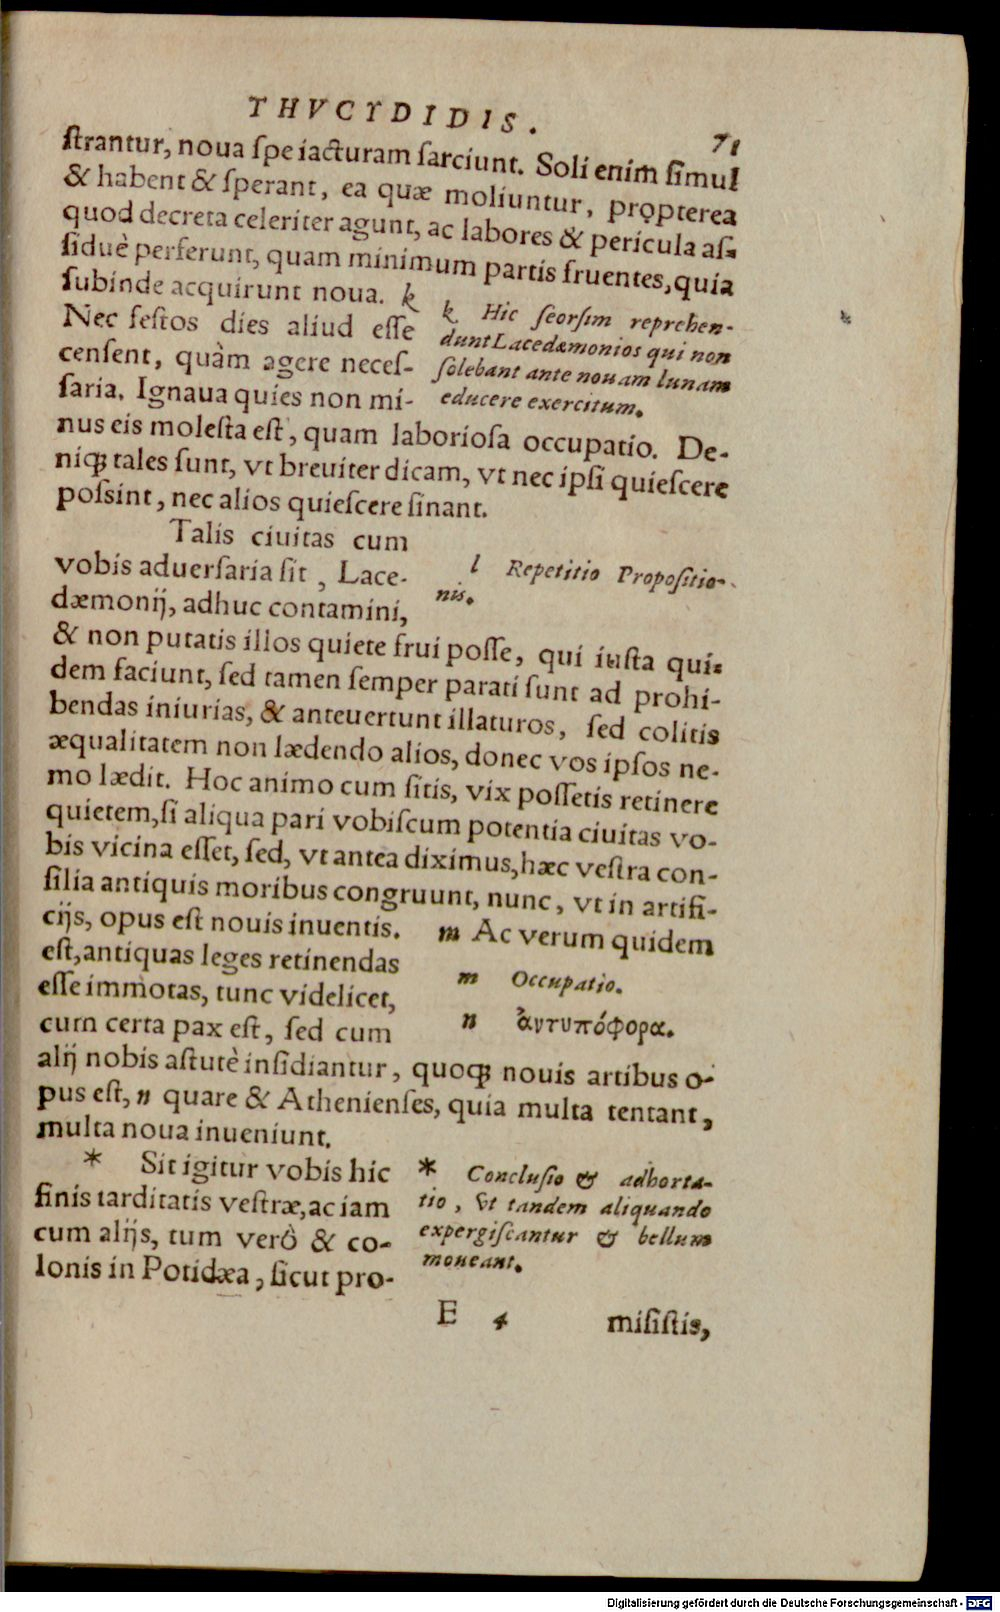 THVCYDIDIS.
71
ſtrantur, noua ſpe iacturam ſarciunt. Soli enim ſimul
& habent & ſperant, ea quæ moliuntur, propterea
quod decreta celeriter agunt, ac labores & pericula aſ-
ſiduè perferunt, quam minimum partis fruentes, quia
ſubinde acquirunt noua. k
Nec feſtos dies aliud eſſe
cenſent, quàm agere neceſ-
ſaria. Ignaua quies non mi-
k Hic ſeorſim reprehen-
dunt Lacedæmonios qui non
ſolebant ante nouam lunam
educere exercitum.
nus eis moleſta eſt, quam laborioſa occupatio. De-
niqꝫ tales ſunt, vt breuiter dicam, vt nec ipſi quieſcere
poſsint, nec alios quieſcere ſinant.
Talis ciuitas cum
vobis aduerſaria ſit, Lace-
dæmonij, adhuc contamini,
l Repetitio Propoſitio-
nis.
& non putatis illos quiete frui poſſe, qui iuſta qui-
dem faciunt, ſed tamen ſemper parati ſunt ad prohi-
bendas iniurias, & anteuertunt illaturos, ſed colitis
æqualitatem non lædendo alios, donec vos ipſos ne-
mo lædit. Hoc animo cum ſitis, vix poſſetis retinere
quietem, ſi aliqua pari vobiſcum potentia ciuitas vo-
bis vicina eſſet, ſed, vt antea diximus, hæc veſtra con-
ſilia antiquis moribus congruunt, nunc, vt in artifi-
cijs, opus eſt nouis inuentis. m Ac verum quidem
eſt, antiquas leges retinendas
eſſe immotas, tunc videlicet,
cum certa pax eſt, ſed cum
m Occupatio.
n ἀντυπόφορα.
alij nobis aſtutè inſidiantur, quoqꝫ nouis artibus o-
pus eſt, n quare & Athenienſes, quia multa tentant,
multa noua inueniunt.
* Sit igitur vobis hic
finis tarditatis veſtræ, ac iam
cum alijs, tum verò & co-
lonis in Potidæa, ſicut pro-
* Concluſio & adhorta-
tio, vt tandem aliquando
expergiſcantur & bellum
moueant.
E 4 miſiſtis,
Digitalisierung gefördert durch die Deutsche Forschungsgemeinschaft - DFG